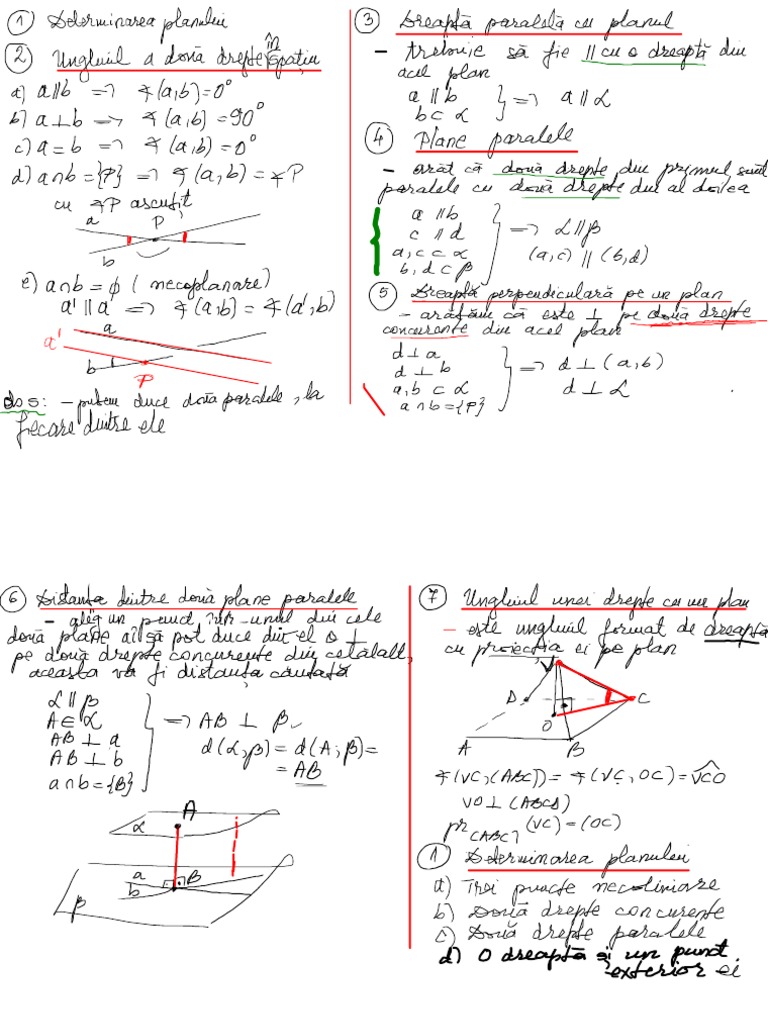 ① Determinarea planului
② Unghiul a două drepte în spațiu
a) a∥b ⟹ ∢(a,b)=0°
b) a⊥b ⟹ ∢(a,b)=90°
c) a=b ⟹ ∢(a,b)=0°
d) a∩b={P} ⟹ ∢(a,b)=∢P
cu ∢P ascuțit
a
P
b
e) a∩b=ϕ (necoplanare)
a'∥a ⟹ ∢(a,b)=∢(a',b)
a
a'
b
P
obs: - putem duce două paralele, la
fiecare dintre ele
③ Dreaptă paralelă cu planul
- trebuie să fie ∥ cu o dreaptă din
acel plan
a∥b
b⊂α
} ⟹ a∥α
④ Plane paralele
- arăt că două drepte din primul sunt
paralele cu două drepte din al doilea
a∥b
c∥d
a,c⊂α
b,d⊂β
} ⟹ α∥β
(a,c)∥(b,d)
⑤ Dreaptă perpendiculară pe un plan
- arătăm că este ⊥ pe două drepte
concurente din acel plan
d⊥a
d⊥b
a,b⊂α
a∩b={P}
} ⟹ d⊥(a,b)
d⊥α
⑥ Distanța dintre două plane paralele
- aleg un punct într-unul din cele
două plane a.î. să pot duce din el o ⊥
pe două drepte concurente din celălalt,
aceasta va fi distanța căutată
α∥β
A∈α
AB⊥a
AB⊥b
a∩b={B}
} ⟹ AB⊥β
d(α;β)=d(A;β)=
=AB
A
α
a
b
B
β
⑦ Unghiul unei drepte cu un plan
- este unghiul format de dreaptă
cu proiecția ei pe plan
V
D
C
O
A
B
∢(VC,(ABC))=∢(VC,OC)=VCO
VO⊥(ABCD)
pr(ABC)(VC)=(OC)
① Determinarea planului
a) Trei puncte necoliniare
b) Două drepte concurente
c) Două drepte paralele
d) O dreaptă și un punct
exterior ei